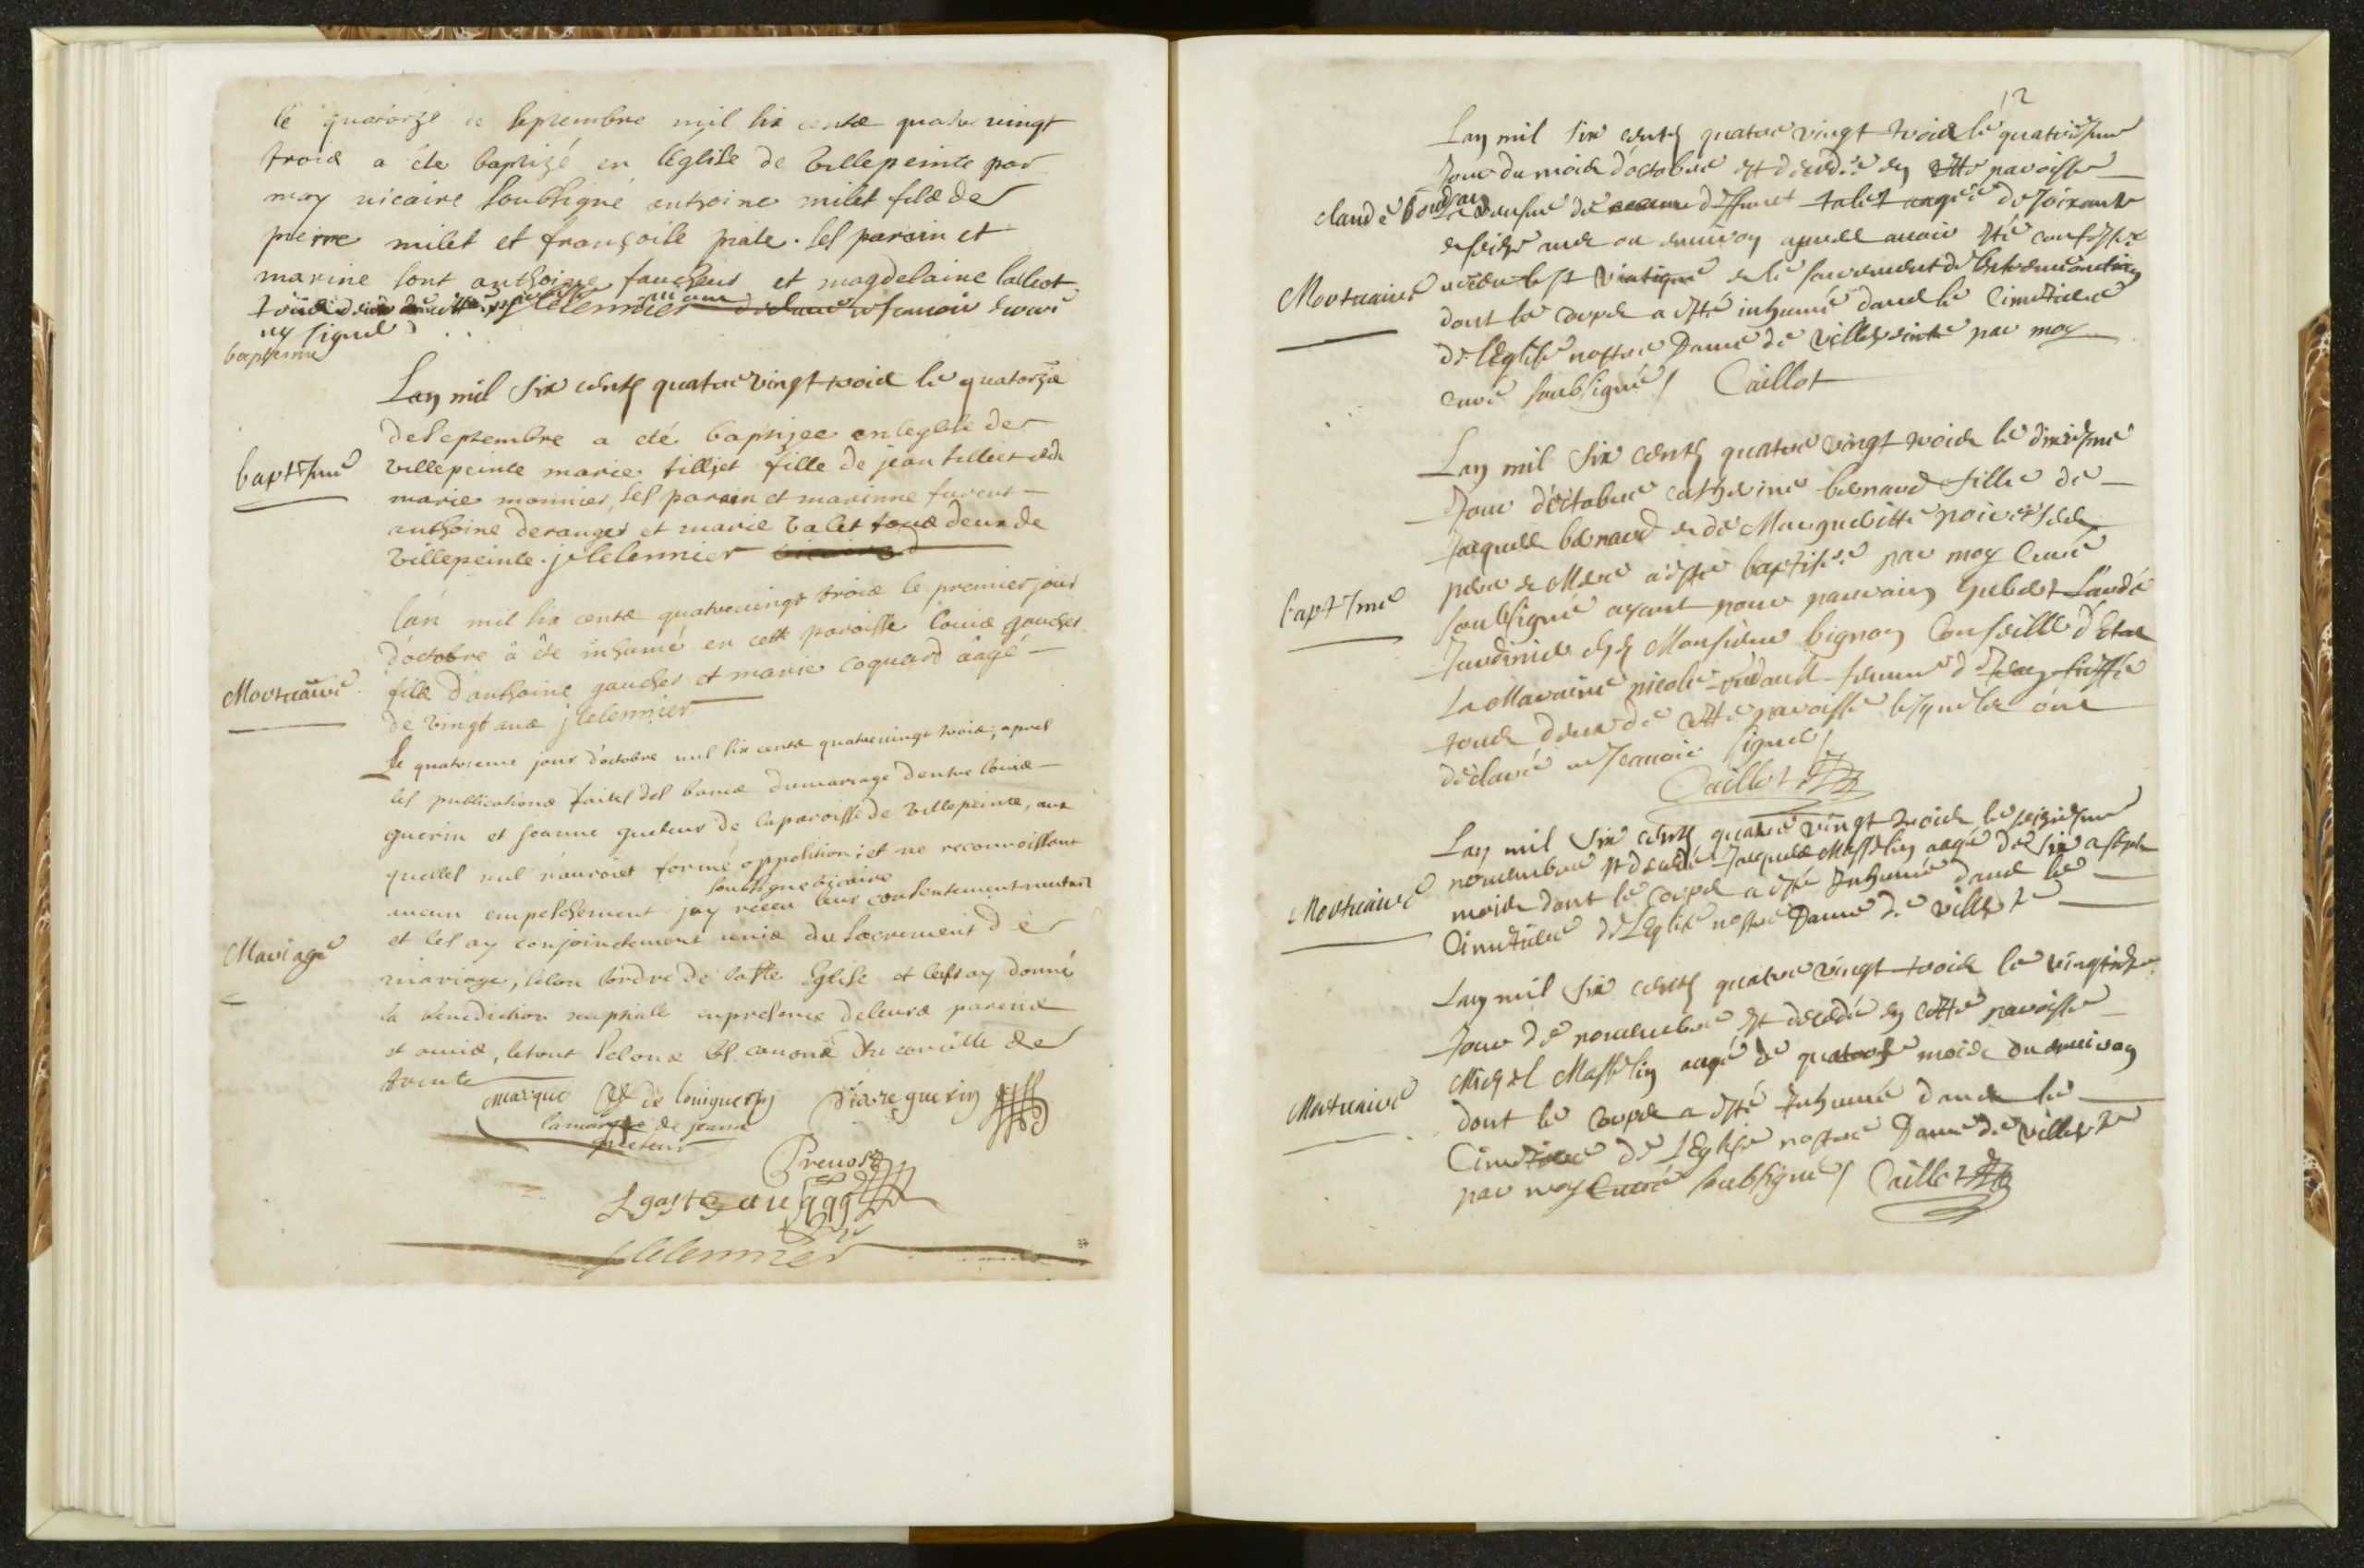 le quatorze de septembre mil six cents quatre vingt
trois a été baptizé en l'Eglise de Villepeinte par
moy vicaire soubsigné anthoine milet fils de
pierre milet et françoise piate. les parain et
marine sont anthoine faucheur et magdelaine
tous deux de cette jlelennier
ny signer
baptesme
Lan mil six cents quatre vingt trois le quatorzie
baptesme
de septembre a eté baptizee en leglise de
villepeinte marie tilliet fille de jean tilliet et de
marie monnier, les parain et marinne furent
anthoine deranger et marie valet tous deux de
villepeinte. jlelennier vicaire
lan mil six cents quatrevingt trois le premier jour
d'octobre â éte inhumé en cette paroisse louis gaucher
Mortuaire
fils d'anthoine gaucher et marie coquard âagé
de vingt ans jlelennier
Le quatrieme jour d'octobre mil six cents quatrevingt trois, apres
les publications faites des bancs du mariage d'entre louis
guerin et jeanne queteur de la paroisse de villepeinte, aux
quelles nul n'auroiet formé opposition; et ne reconnoissant
soubsigné vicaire
aucun empeschement jay receu leur consentement mutuel
Mariage
et les ay conjoinctement unis du sacrement de
mariage, selon l'ordre de la ste Eglise et leur ay donné
la benediction nuptialle en presence de leurs parens
et amis, le tout selons les canons du concille de
trente
marque de louis guerin Piare guerin
la marque de jeanne
queteur
Prevost
jlelennier
37
12
Lan mil six cents quatre vingt trois le quatriesme
Jour du mois d'octobre est decedée en cette paroisse
claude
vefve de deffunct valet aagée de soixante
et seize ans ou environ apres avoir esté confessée
Mortuaire
receu le st viatique et le sacrement de l'extremonction
dont le corps a esté inhumé dans le Cimetiere
de l'Eglise nostre Dame de Villepeinte par moy
curé soubsigné / Caillot
Lan mil six cents quatre vingt trois le dixiesme
Jour d'octobre catherine bernard fille de
Jacques bernard et de Margueritte ses
baptesme
pere et Mere a esté baptisée par moy Curé
soubsigné ayant pour parrain hubert
Jardinier chez Monsieur bignon Conseille d'Etat
La Maraine nicole femme de
tous deux de cette paroisse lesquels ont
declaré ne scavoir signer /
Caillot
Lan mil six cents quatre vingt trois le seiziesme
Mortuaire
novembre est decedé Jacques Masselin aagé de six a sept
mois dont le corps a esté Inhumé dans le
Cimetiere de L'Eglise nostre Dame de villepte
Lan mil six cents quatre vingt trois le vingtiesme
Jour de novembre est decedé en cette paroisse
Michel Masselin aagé de quatorse mois ou environ
Mortuaire
dont le corps a esté Inhumé dans le
Cimetiere de L'Eglise nostre Dame de villepte
par moy Curé soubsigné / Caillot